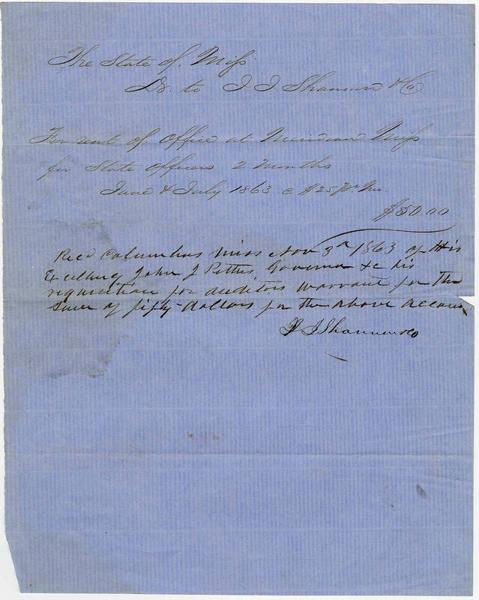 The State of Miss
Dr. to J J Shannon & Co
For rent of Office at Meridian Miss
for State Officers 2 months
June & July 1863 @ $25 pr. Mo.
$50.00
Recd Columbus Miss Nov 3rd 1863 of His
Excellency John J Pettus, Governor &c his
requisition for auditors warrant for the
sum of fifty-dollars for the above account
J J Shannon & Co